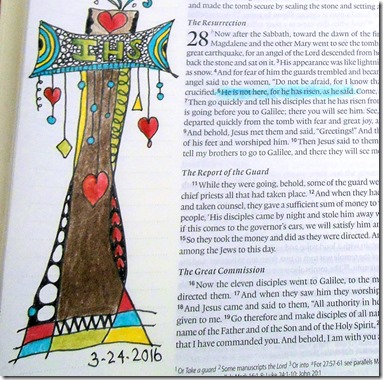 IHS
3-24-2016
and made the tomb secure by sealing the stone and setting
The Resurrection
28 1 Now after the Sabbath, toward the dawn of the fi
Magdalene and the other Mary went to see the tomb
great earthquake, for an angel of the Lord descended from h
back the stone and sat on it. 3 His appearance was like lightni
as snow. 4 And for fear of him the guards trembled and becam
angel said to the women, “Do not be afraid, for I know tha
crucified. 6 He is not here, for he has risen, as he said. Come,
7 Then go quickly and tell his disciples that he has risen from
is going before you to Galilee; there you will see him. See,
departed quickly from the tomb with fear and great joy, a
9 And behold, Jesus met them and said, “Greetings!” And th
of his feet and worshiped him. 10 Then Jesus said to them
tell my brothers to go to Galilee, and there they will see me
The Report of the Guard
11 While they were going, behold, some of the guard we
chief priests all that had taken place. 12 And when they ha
and taken counsel, they gave a sufficient sum of money to
people, ‘His disciples came by night and stole him away w
if this comes to the governor’s ears, we will satisfy him a
15 So they took the money and did as they were directed. A
among the Jews to this day.
The Great Commission
16 Now the eleven disciples went to Galilee, to the m
directed them. 17 And when they saw him they worship
18 And Jesus came and said to them, “All authority in h
given to me. 19 Go therefore and make disciples of all na
name of the Father and of the Son and of the Holy Spirit,
that I have commanded you. And behold, I am with you
1 Or Take a guard 2 Some manuscripts the Lord 3 Or into